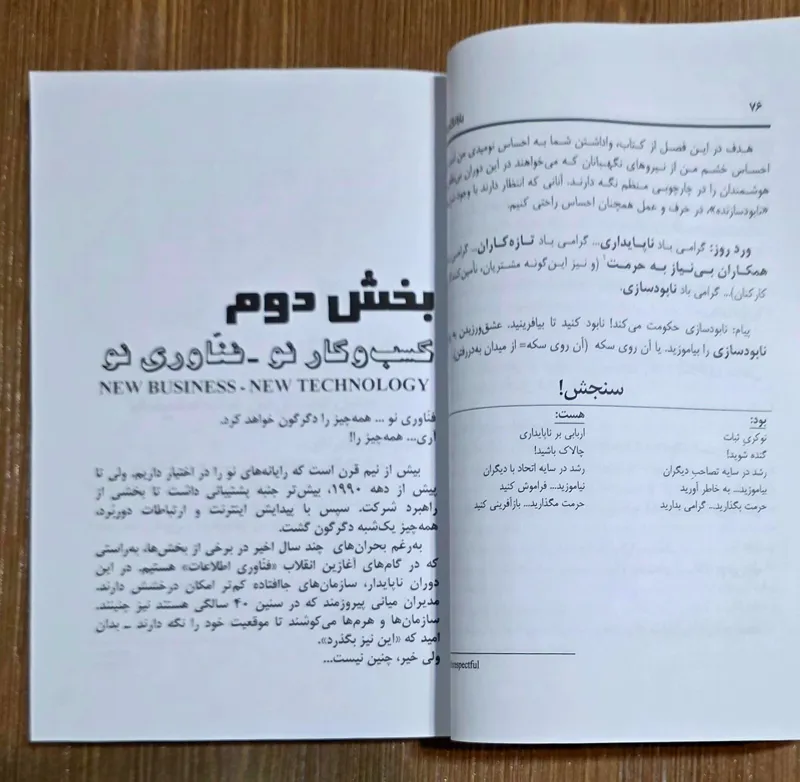 ۷۶
هدف در این فصل از کتاب، واداشتن شما به احساس نومیدی من
احساس خشم من از نیروهای نگهبانان که می‌خواهند در این دوران
هوشمندان را در چارچوبی منظم نگه دارند. آنانی که انتظار دارند با وجود
«نابودسازنده»، در حرف و عمل همچنان احساس راحتی کنیم.
ورد روز: گرامی باد ناپایداری... گرامی باد تازه‌کاران... گرامی
همکاران بی‌نیاز به حرمت۱ (و نیز این‌گونه مشتریان، تأمین‌کنندگان
کارکنان)... گرامی باد نابودسازی.
پیام: نابودسازی حکومت می‌کند! نابود کنید تا بیافرینید. عشق‌ورزیدن به
نابودسازی را بیاموزید. یا آن روی سکه (آن روی سکه= از میدان به‌دررفتن)
سنجش!
بود: هست:
نوکری ثبات اربابی بر ناپایداری
گنده شوید! چالاک باشید!
رشد در سایه تصاحب دیگران رشد در سایه اتحاد با دیگران
بیاموزید... به خاطر آورید نیاموزید... فراموش کنید
حرمت بگذارید... گرامی بدارید حرمت مگذارید... بازآفرینی کنید
بخش دوم
کسب‌وکار نو ـ فنّاوری نو
NEW BUSINESS - NEW TECHNOLOGY
فنّاوری نو ... همه‌چیز را دگرگون خواهد کرد.
آری... همه‌چیز را!
بیش از نیم قرن است که رایانه‌های نو را در اختیار داریم. ولی تا
پیش از دهه ۱۹۹۰، بیش‌تر جنبه پشتیبانی داشت تا بخشی از
راهبرد شرکت. سپس با پیدایش اینترنت و ارتباطات دوربرد،
همه‌چیز یک‌شبه دگرگون گشت.
به‌رغم بحران‌های چند سال اخیر در برخی از بخش‌ها، به‌راستی
که در گام‌های آغازین انقلاب «فنّاوری اطلاعات» هستیم. در این
دوران ناپایدار، سازمان‌های جاافتاده کم‌تر امکان درخشش دارند.
مدیران میانی پیروزمند که در سنین ۴۰ سالگی هستند نیز چنینند.
سازمان‌ها و هرم‌ها می‌کوشند تا موقعیت خود را نگه دارند ـ بدان
امید که «این نیز بگذرد».
ولی خیر، چنین نیست...